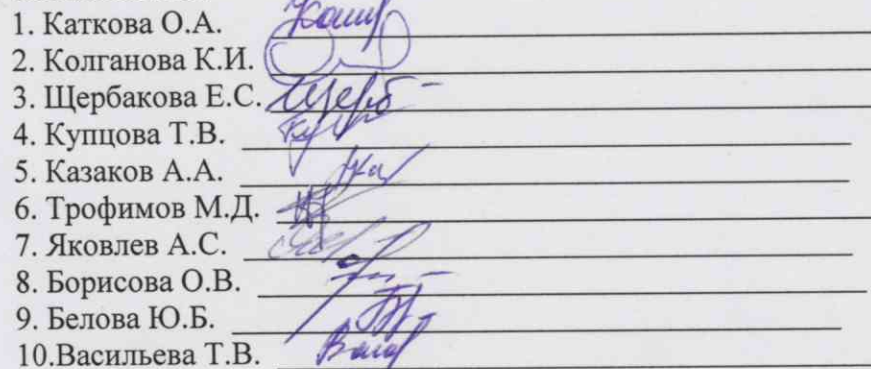 1. Каткова О.А.
2. Колганова К.И.
3. Щербакова Е.С.
4. Купцова Т.В.
5. Казаков А.А.
6. Трофимов М.Д.
7. Яковлев А.С.
8. Борисова О.В.
9. Белова Ю.Б.
10.Васильева Т.В.